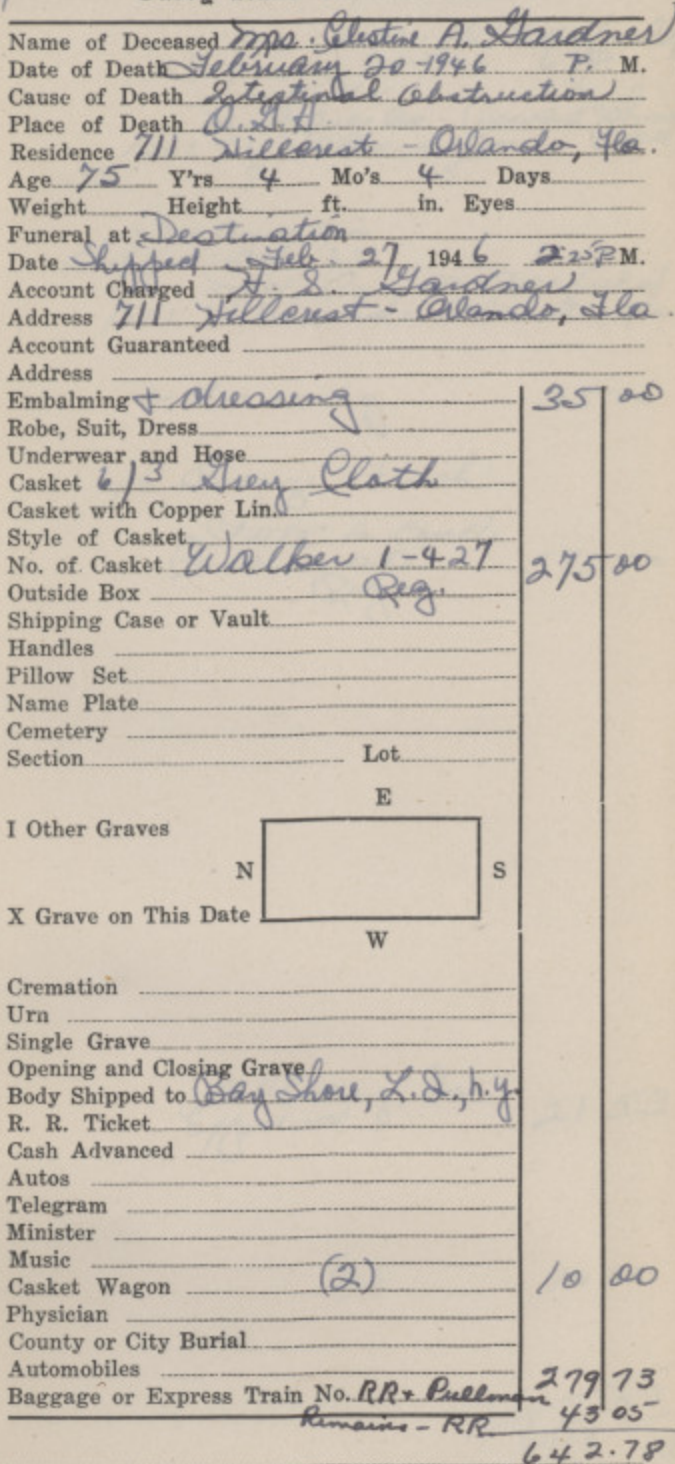 Name of Deceased Mrs. Celestine A. Gardner
Date of Death February 20-1946 P. M.
Cause of Death Intestinal Obstruction
Place of Death O.G.H.
Residence 711 Hillcrest - Orlando, Fla.
Age 75 Y'rs 4 Mo's 4 Days
Weight Height ft. in. Eyes
Funeral at Destination
Date Shipped Feb. 27 1946 2:25 P M.
Account Charged H. S. Gardner
Address 711 Hillcrest - Orlando, Fla.
Account Guaranteed
Address
Embalming + dressing 35 00
Robe, Suit, Dress
Underwear and Hose
Casket 6/3 Grey Cloth
Casket with Copper Lin.
Style of Casket
No. of Casket Walker 1-427 275 00
Outside Box Reg.
Shipping Case or Vault
Handles
Pillow Set
Name Plate
Cemetery
Section Lot
E
I Other Graves
N S
X Grave on This Date
W
Cremation
Urn
Single Grave
Opening and Closing Grave
Body Shipped to Bay Shore, L.I., N.Y.
R. R. Ticket
Cash Advanced
Autos
Telegram
Minister
Music
Casket Wagon (2) 10 00
Physician
County or City Burial
Automobiles
Baggage or Express Train No. RR + Pullman 279 73
Remains - RR 43 05
642.78